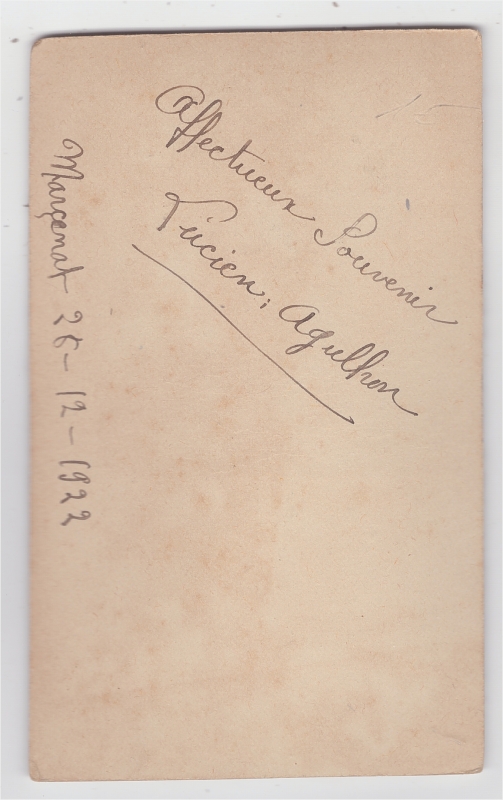 Affectueux Souvenir
Lucien, Agulhon
Marçenat 26-12-1922